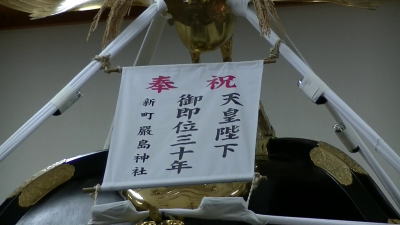 奉祝
天皇陛下
御即位三十年
新町 嚴島神社